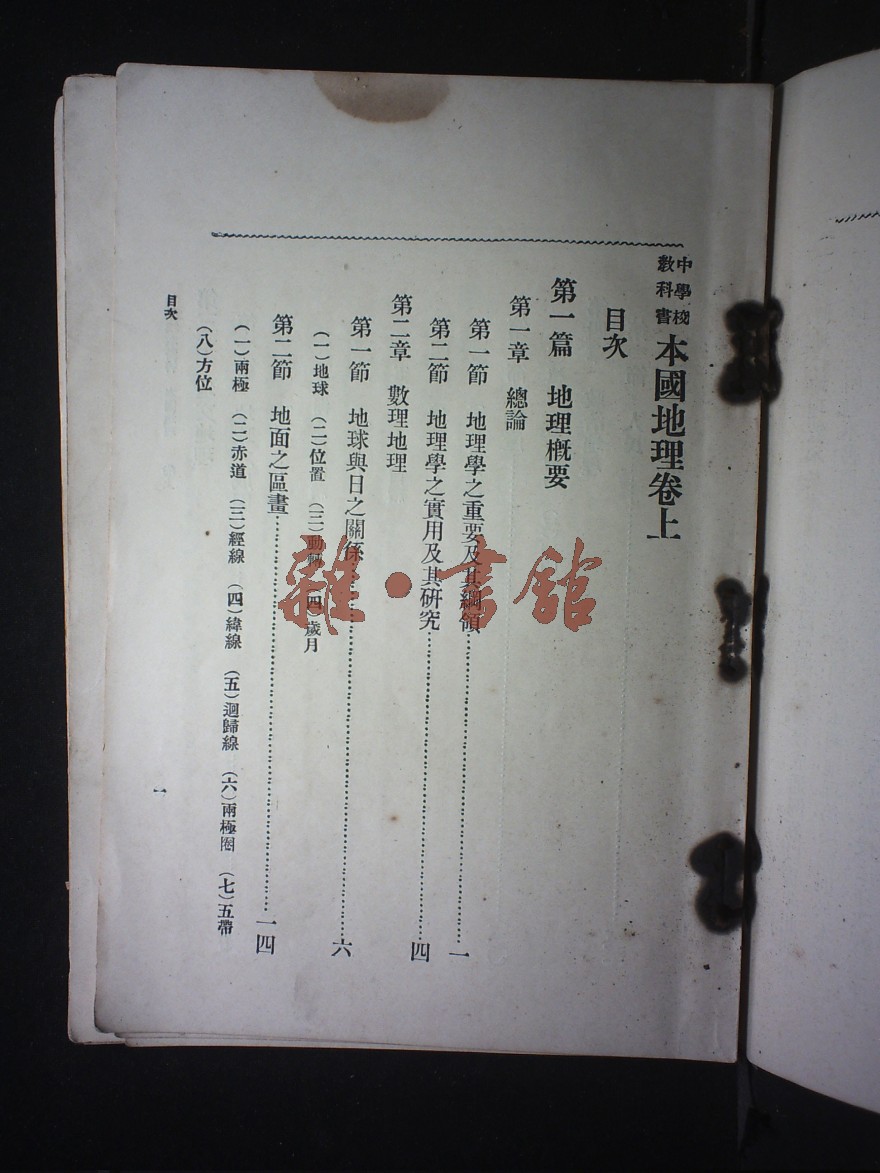 中學校
教科書
本國地理卷上
目次
第一篇 地理概要
第一章 總論
第一節 地理學之重要及其綱領……一
第二節 地理學之實用及其研究……四
第二章 數理地理
第一節 地球與日之關係……六
(一)地球 (二)位置 (三)動轉 (四)歲月
第二節 地面之區畫……一四
(一)兩極 (二)赤道 (三)經線 (四)緯線 (五)迴歸線 (六)兩極圈 (七)五帶
(八)方位
目次
一
雜·書館